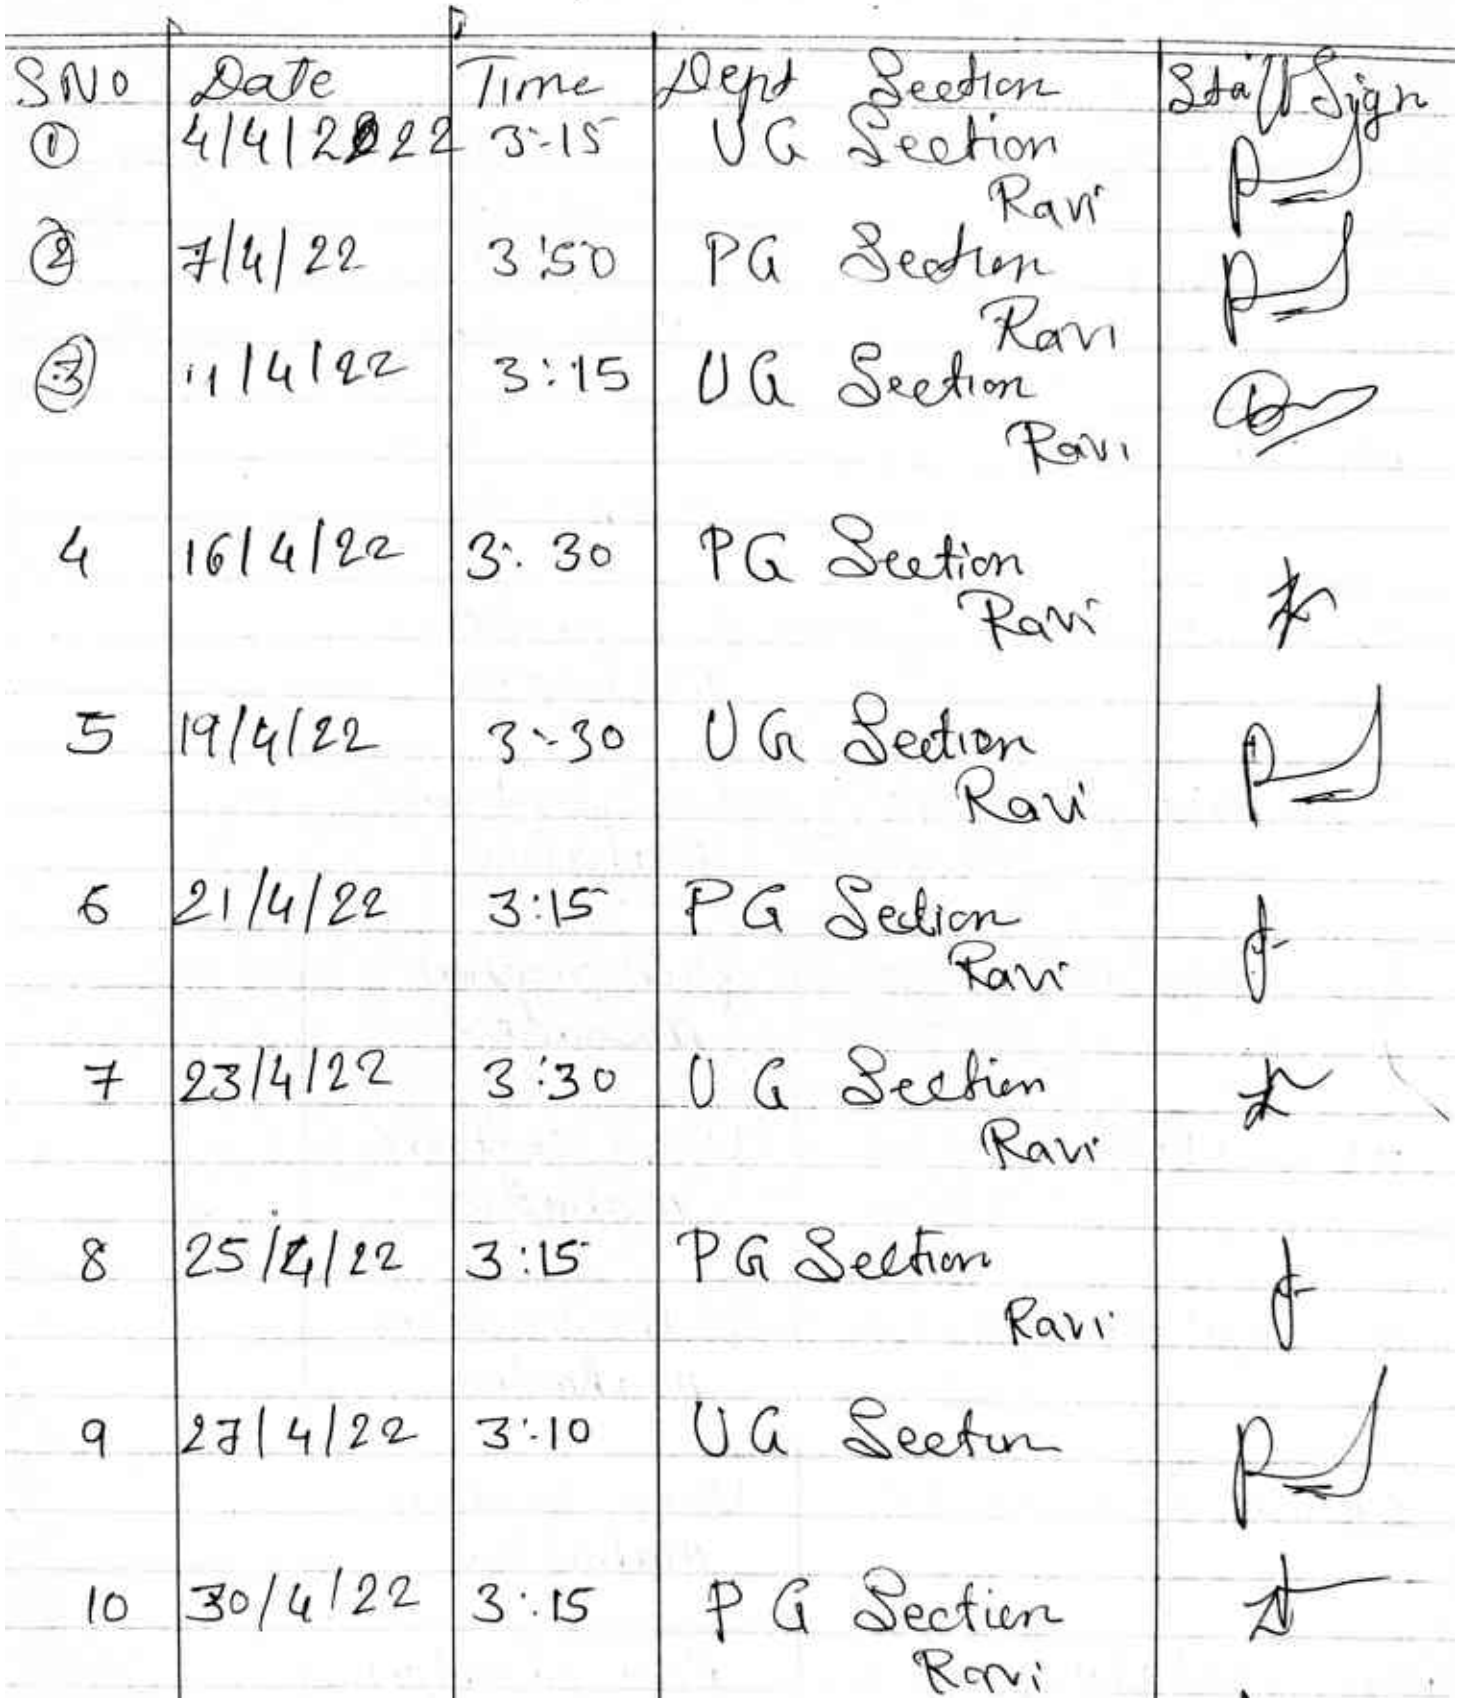 SNO Date Time Dept Section Staff Sign
1 4/4/2022 3:15 UG Section
Ravi
2 7/4/22 3:50 PG Section
Ravi
3 11/4/22 3:15 UG Section
Ravi
4 16/4/22 3:30 PG Section
Ravi
5 19/4/22 3:30 UG Section
Ravi
6 21/4/22 3:15 PG Section
Ravi
7 23/4/22 3:30 UG Section
Ravi
8 25/4/22 3:15 PG Section
Ravi
9 27/4/22 3:10 UG Section
10 30/4/22 3:15 PG Section
Ravi